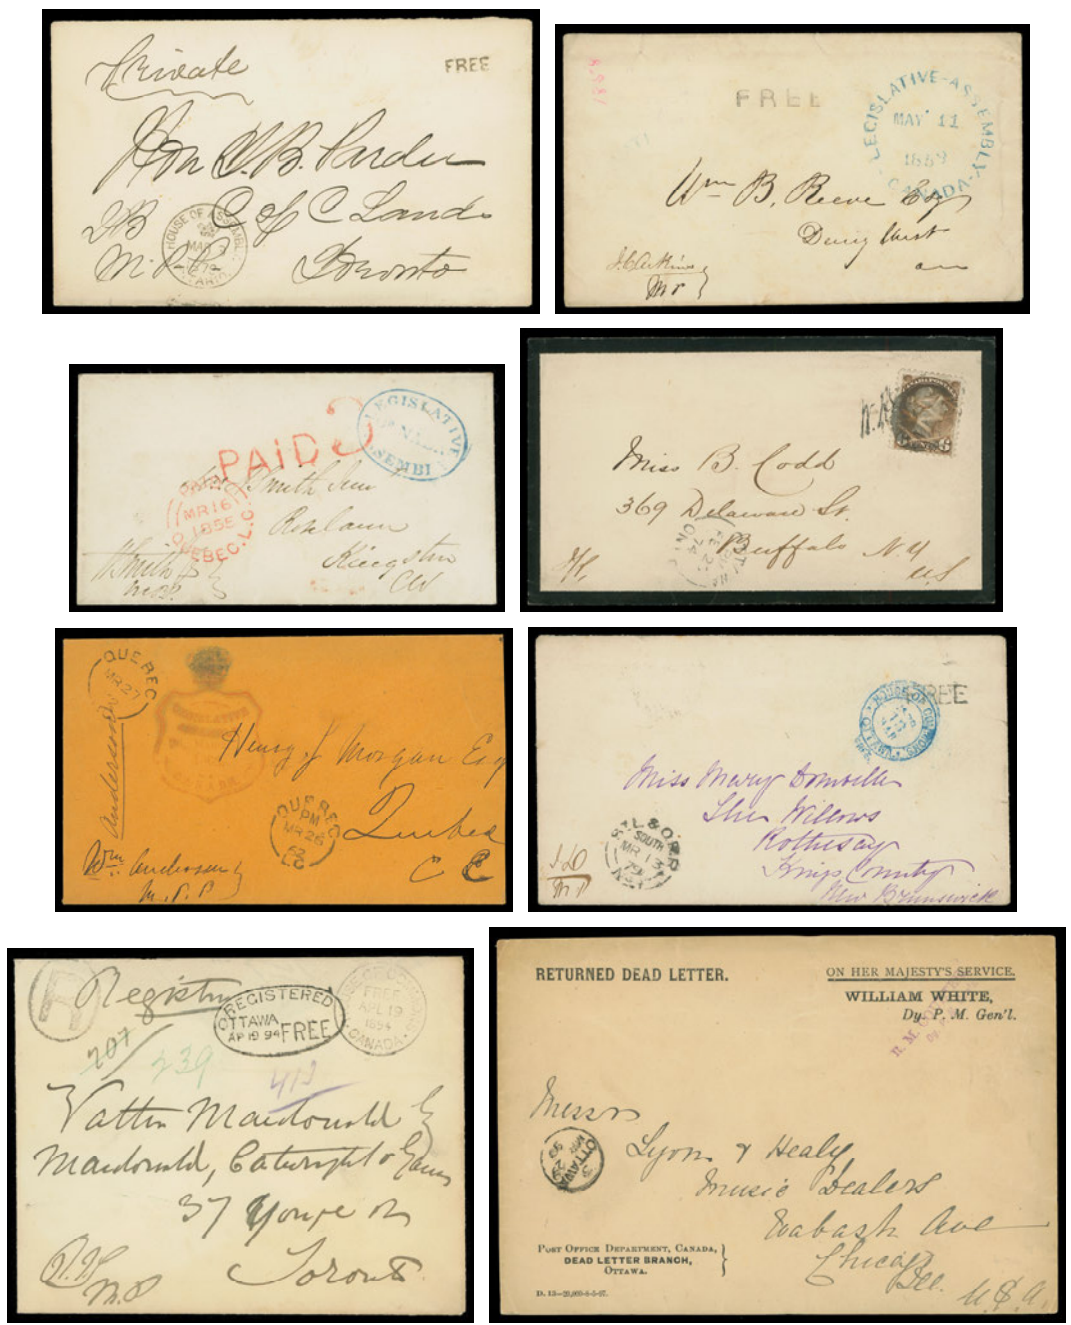 Private
FREE
Hon T. B. Pardee
C of C Lands
Toronto
HOUSE OF ASSEMBLY
MAR
ONTARIO
FREE
LEGISLATIVE-ASSEMBLY-
MAY 11
1859
CANADA
Wm B. Reeve Esq
PAID 3
LEGISLATIVE
CANADA
ASSEMBLY
PAID
MR 16
1855
QUEBEC. L.C.
Smith
Kingston
CW
Miss B. Codd
369 Delaware St.
Buffalo N.Y
US
QUEBEC
MR 27
LEGISLATIVE
Anderson
Henry J Morgan Esq
Quebec
C E
QUEBEC
PM
MR 26
62
LC
Wm Anderson
M.P.P
FREE
HOUSE OF COMMONS
OTTAWA
Miss Mary Domville
The Willows
Rothesay
Kings County
New Brunswick
MR 13
79
SOUTH
MP
R
Register
REGISTERED
OTTAWA
AP 19 94 FREE
FREE
APL 19
1894
CANADA
207
239
413
Macdonald, Cartwright &
37 Yonge St
Toronto
M.P
RETURNED DEAD LETTER.
ON HER MAJESTY'S SERVICE.
WILLIAM WHITE,
Dy. P. M. Gen'l.
Messrs
OTTAWA
Lyon & Healy
Music Dealers
Wabash Ave
Chicago
Ill.
U.S.A.
POST OFFICE DEPARTMENT, CANADA,
DEAD LETTER BRANCH,
OTTAWA.
D. 13—20,000-8-5-97.